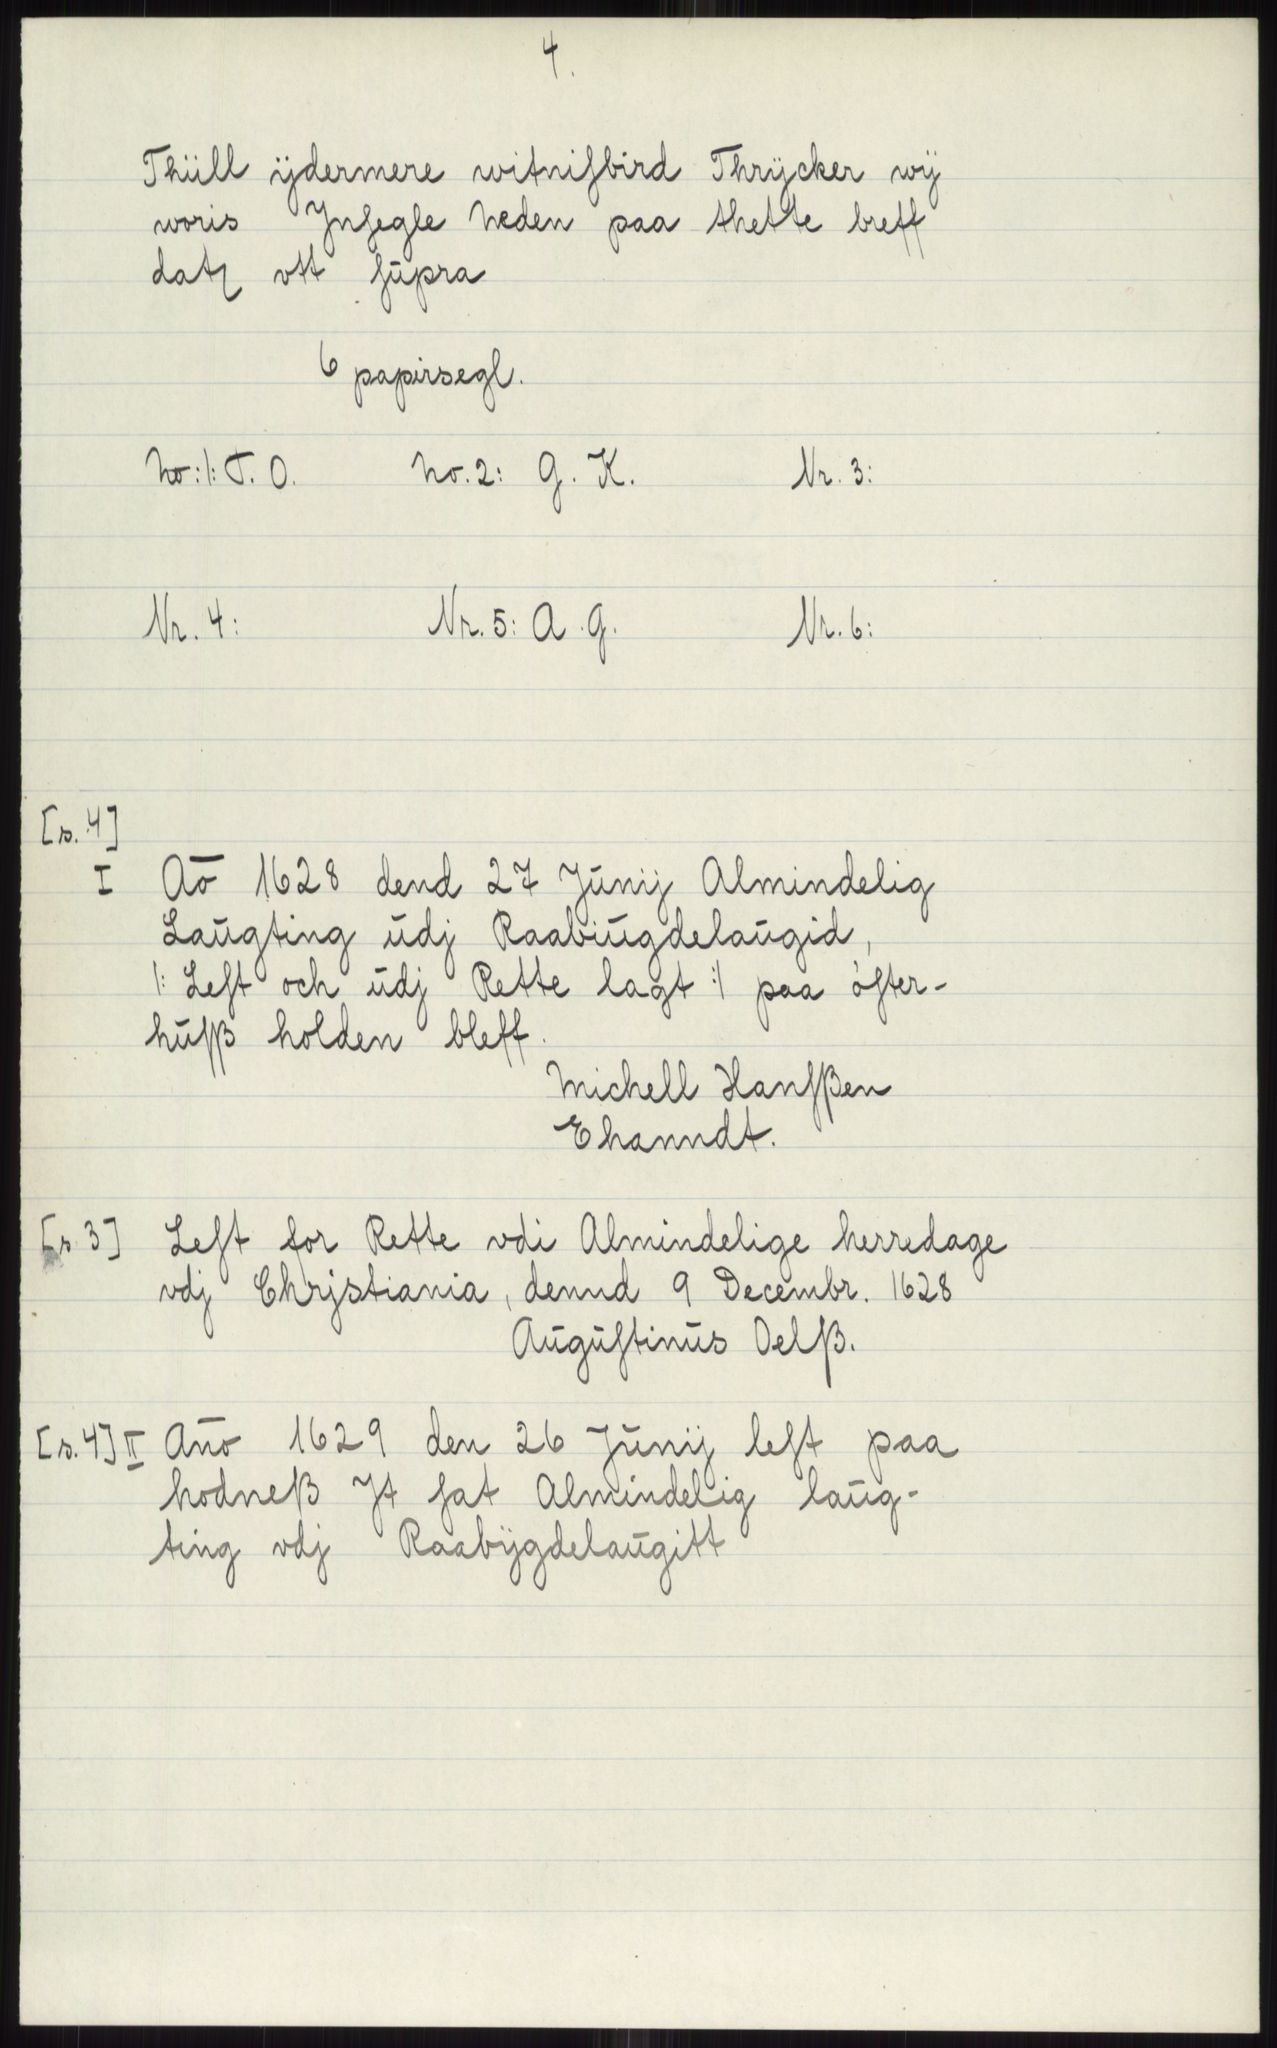 4.
Thüll ÿdermere witniſbird Thrÿcker wÿ
woris Jnſegle Neden paa thette breff
datz vtt ſŭpra
6 papirsegl.
No: 1: T. O. No. 2: G. K. Nr. 3:
Nr. 4: Nr. 5: A. G. Nr. 6:
[s. 4]
I Aō 1628 dend 27 Jŭnij Almindelig
Laŭgting ŭdj Raabiŭgdelaŭgid,
/: Leſt och ŭdj Rette lagt :/ paa öſter-
hŭſß holden bleff.
Michell Hanſßen
Ehanndt.
[s 3] Leſt for Rette vdi Almindelige herredage
vdj Chrjstiania, dennd 9 Decembr. 1628
Aŭgŭſtinŭs Oelß.
[s. 4] II An̄o 1629 den 26 Jŭnij leſt paa
hodneß Jt ſat Almindelig laŭg-
ting vdj Raabÿgdelaŭgitt